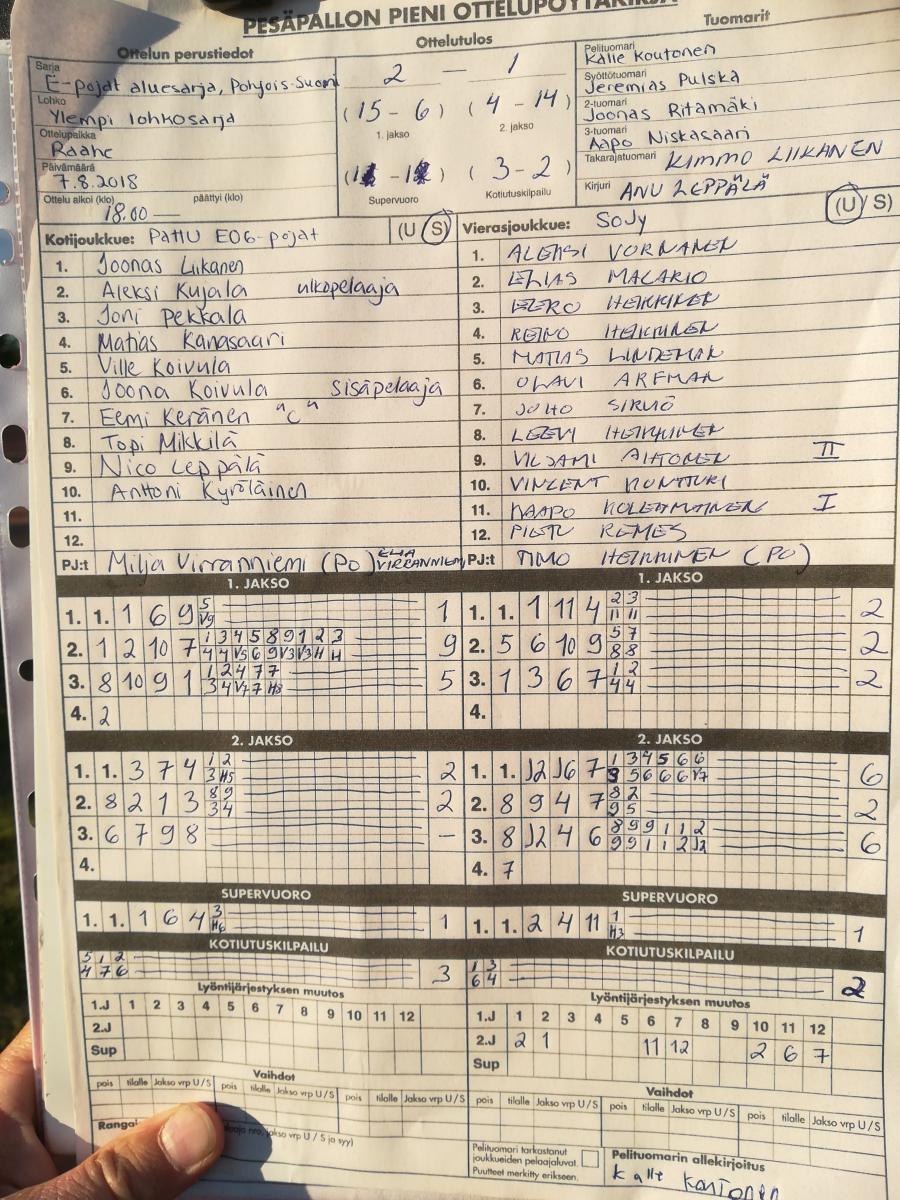 PESÄPALLON PIENI OTTELUPÖYTÄKIRJA
Ottelun perustiedot
Sarja
E-pojat aluesarja, Pohjois-Suomi
Lohko
Ylempi lohkosarja
Ottelupaikka
Raahe
Päivämäärä
7.8.2018
Ottelu alkoi (klo) päättyi (klo)
18.00 —
Ottelutulos
2 — 1
(15 - 6) (4 - 14)
1. jakso 2. jakso
(1 - 1) (3 - 2)
Supervuoro Kotiutuskilpailu
Tuomarit
Pelituomari
Kalle Koutonen
Syöttötuomari
Jeremias Pulska
2-tuomari
Joonas Ritamäki
3-tuomari
Aapo Niskasaari
Takarajatuomari KIMMO LIIKANEN
Kirjuri ANU LEPPÄLÄ
Kotijoukkue: PattU E06-pojat (U S)
1. Joonas Liikanen
2. Aleksi Kujala ulkopelaaja
3. Joni Pekkala
4. Matias Kanasaari
5. Ville Koivula
6. Joona Koivula sisäpelaaja
7. Eemi Keränen "C"
8. Topi Mikkilä
9. Nico Leppälä
10. Anttoni Kyröläinen
11.
12.
PJ:t Milja Virranniemi (PO) ELIA VIRRANNIEMI
Vierasjoukkue: SoJy (U/S)
1. ALEKSI VORNANEN
2. ELIAS MACARIO
3. EERO HEIKKINEN
4. REINO HEIKKINEN
5. MATIAS LINDEMAN
6. OLAVI ARFMAN
7. JUHO SIRVIÖ
8. LEEVI HEIKKINEN
9. VILJAMI AIHTONEN II
10. VINCENT KONTTURI
11. KAAPO KOLEHMAINEN I
12. PIETU REMES
PJ:t TIMO HEIKKINEN (PO)
1. JAKSO
1. 1. 1 6 9 5 1
V9
2. 1 2 10 7 1 3 4 5 8 9 1 2 3 9
4 4 V5 6 9 V3 V3 H H
3. 8 10 9 1 1 2 4 7 7 5
3 4 V7 7 H8
4. 2
1. JAKSO
1. 1. 1 11 4 2 3 2
11 11
2. 5 6 10 9 5 7 2
8 8
3. 1 3 6 7 1 2 2
4 4
4.
2. JAKSO
1. 1. 3 7 4 1 2 2
3 H5
2. 8 2 1 3 8 9 2
3 4
3. 6 7 9 8 —
4.
2. JAKSO
1. 1. J2 J6 7 1 3 4 5 6 6 6
3 5 6 6 6 V7
2. 8 9 4 7 8 2 2
9 5
3. 8 J2 4 6 8 9 9 1 1 2 6
9 9 1 1 2 J2
4. 7
SUPERVUORO
1. 1. 1 6 4 3 1
H6
SUPERVUORO
1. 1. 2 4 11 1 1
H3
KOTIUTUSKILPAILU
5 1 2 3
4 7 6
KOTIUTUSKILPAILU
1 3 2
6 4
Lyöntijärjestyksen muutos
1.J 1 2 3 4 5 6 7 8 9 10 11 12
2.J
Sup
Lyöntijärjestyksen muutos
1.J 1 2 3 4 5 6 7 8 9 10 11 12
2.J 2 1 11 12 2 6 7
Sup
Vaihdot
pois tilalle Jakso vrp U/S pois tilalle Jakso vrp U/S pois tilalle Jakso vrp U/S
Vaihdot
pois tilalle Jakso vrp U/S pois tilalle Jakso vrp U/S pois tilalle Jakso vrp U/S
nro, jakso vrp U / S ja syy)
Pelituomari tarkastanut
joukkueiden pelaajaluvat.
Puutteet merkitty erikseen.
Pelituomarin allekirjoitus
Kalle Koutonen